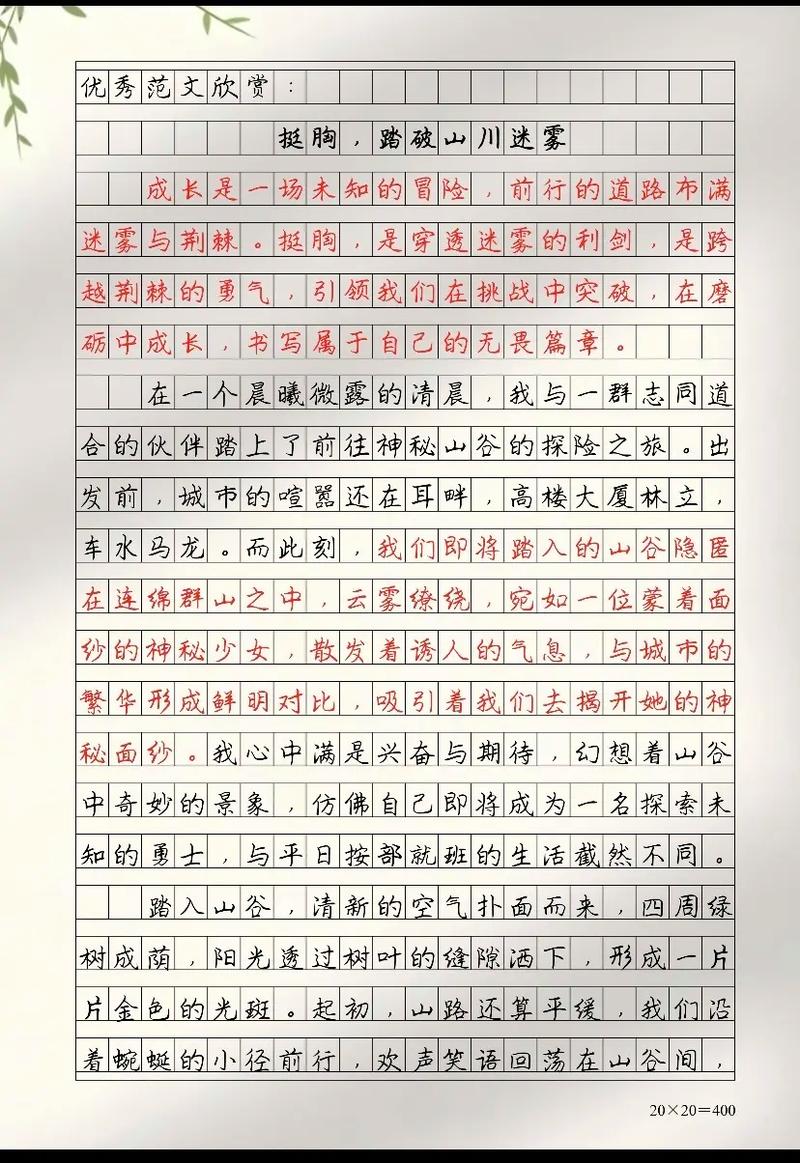 优秀范文欣赏：
挺胸，踏破山川迷雾
成长是一场未知的冒险，前行的道路布满
迷雾与荆棘。挺胸，是穿透迷雾的利剑，是跨
越荆棘的勇气，引领我们在挑战中突破，在磨
砺中成长，书写属于自己的无畏篇章。
在一个晨曦微露的清晨，我与一群志同道
合的伙伴踏上了前往神秘山谷的探险之旅。出
发前，城市的喧嚣还在耳畔，高楼大厦林立，
车水马龙。而此刻，我们即将踏入的山谷隐匿
在连绵群山之中，云雾缭绕，宛如一位蒙着面
纱的神秘少女，散发着诱人的气息，与城市的
繁华形成鲜明对比，吸引着我们去揭开她的神
秘面纱。我心中满是兴奋与期待，幻想着山谷
中奇妙的景象，仿佛自己即将成为一名探索未
知的勇士，与平日按部就班的生活截然不同。
踏入山谷，清新的空气扑面而来，四周绿
树成荫，阳光透过树叶的缝隙洒下，形成一片
片金色的光斑。起初，山路还算平缓，我们沿
着蜿蜒的小径前行，欢声笑语回荡在山谷间，
20×20=400